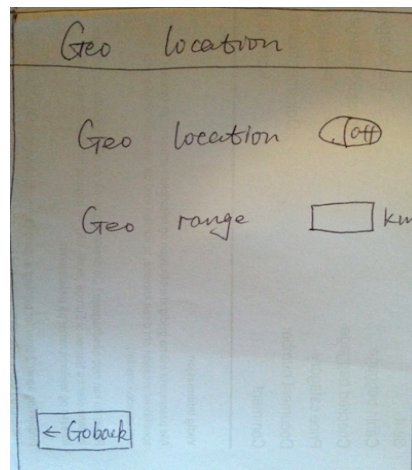 Geo location
Geo location off
Geo range km
← Goback